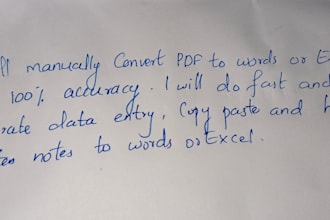 manually Convert PDF to words or E
100% accuracy. I will do fast and
rate data entry, Copy paste and h
ten notes to words or Excel.